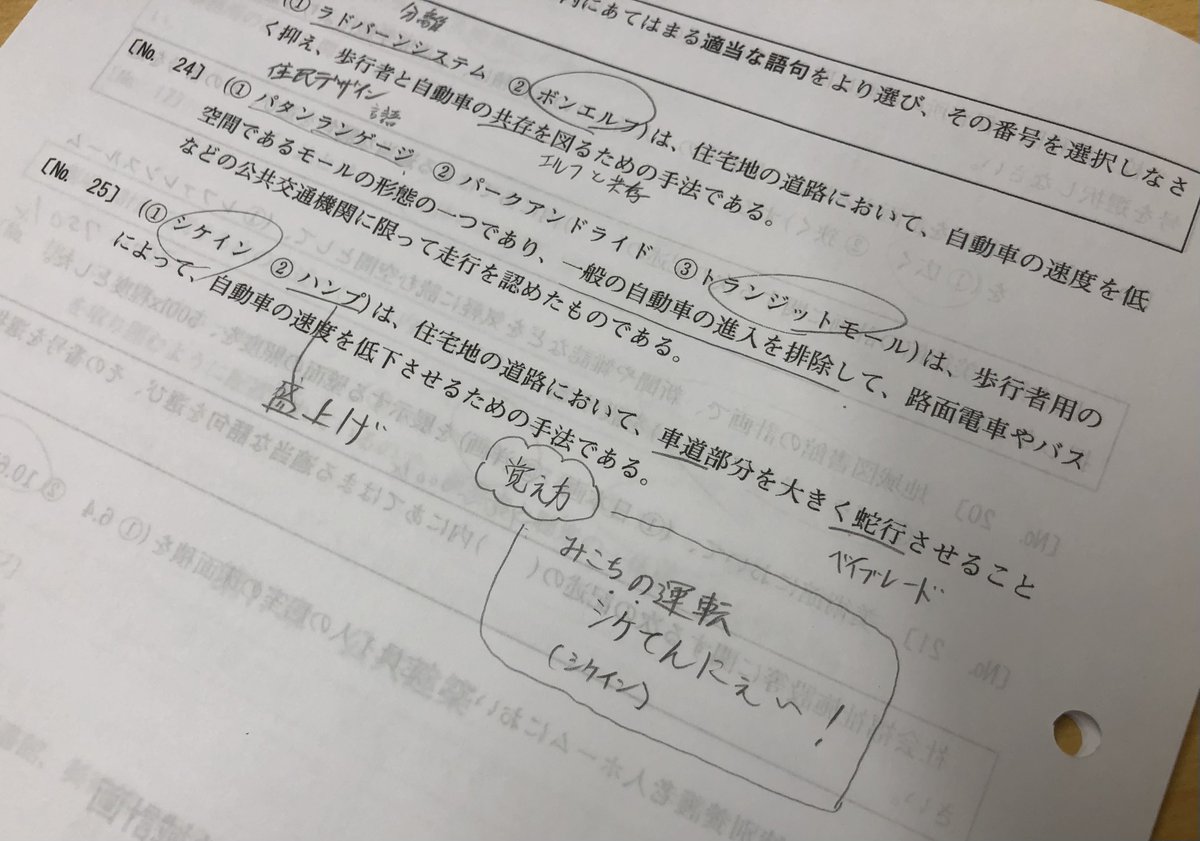 内にあてはまる適当な語句をより選び、その番号を選択しなさ
分離
(① ラドバーンシステム ② ボンエルフ)は、住宅地の道路において、自動車の速度を低
く抑え、歩行者と自動車の共存を図るための手法である。
エルフと共存
住民デザイン
言語
[No. 24] (① パタンランゲージ ② パークアンドライド ③ トランジットモール)は、歩行者用の
空間であるモールの形態の一つであり、一般の自動車の進入を排除して、路面電車やバス
などの公共交通機関に限って走行を認めたものである。
[No. 25] (① シケイン ② ハンプ)は、住宅地の道路において、車道部分を大きく蛇行させること
によって、自動車の速度を低下させるための手法である。
ベイブレード
盛上げ
覚え方
みこちの運転
シケてんにぇい!
(シケイン)